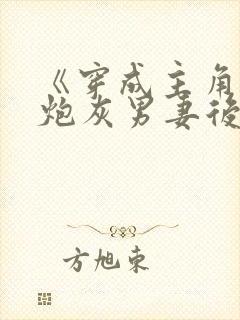 《穿成主角
炮灰男妻後
方旭东